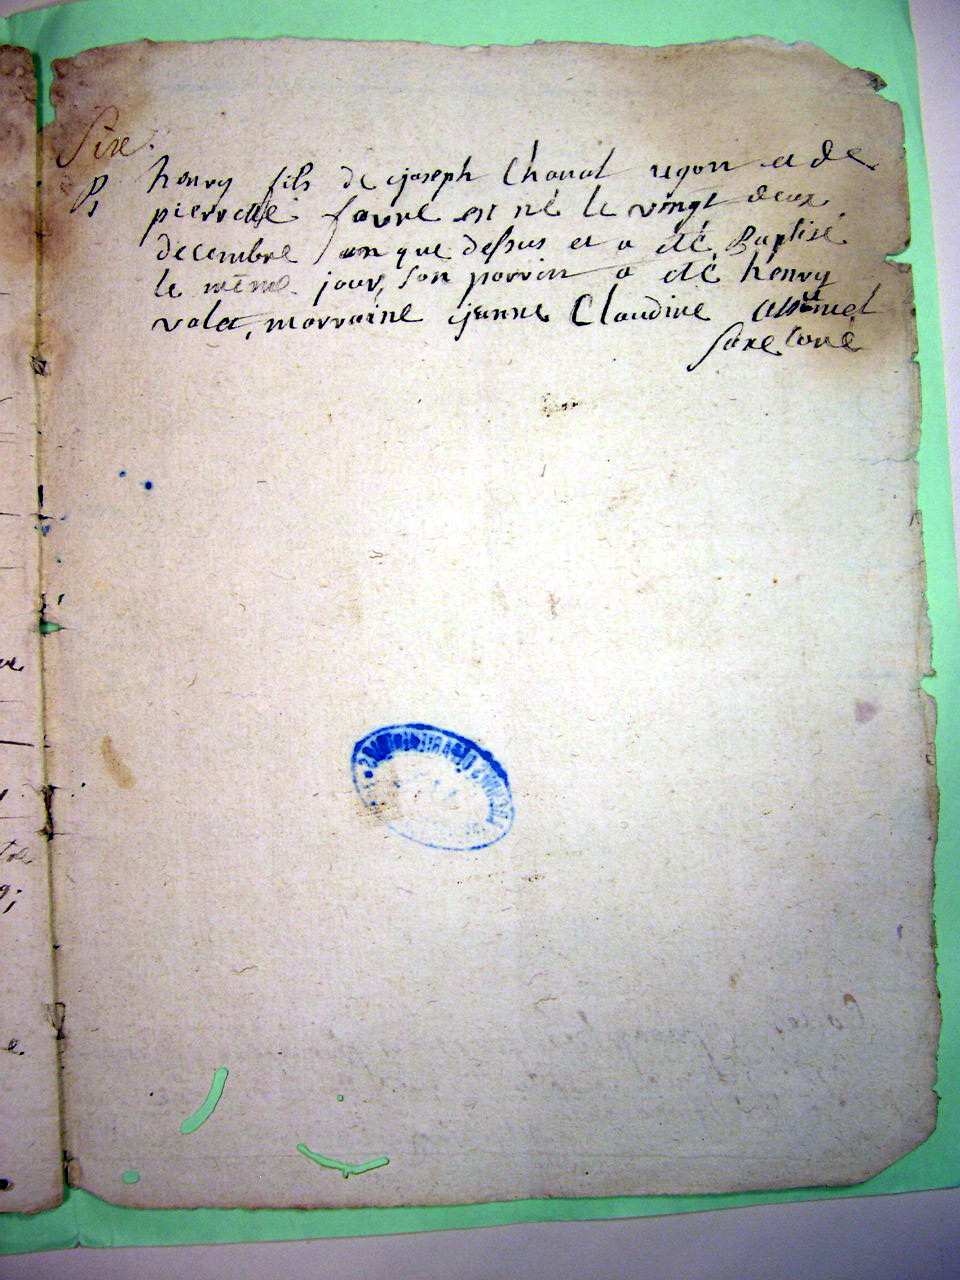 Sixe.
P. henry fils de joseph Chanal ugon et de
pierrette favre est né le vingt deux
decembre an que dessus et a été Baptisé
le même jour, son parrin a été henry
valet, marraine jeanne Claudine
Saxe Curé